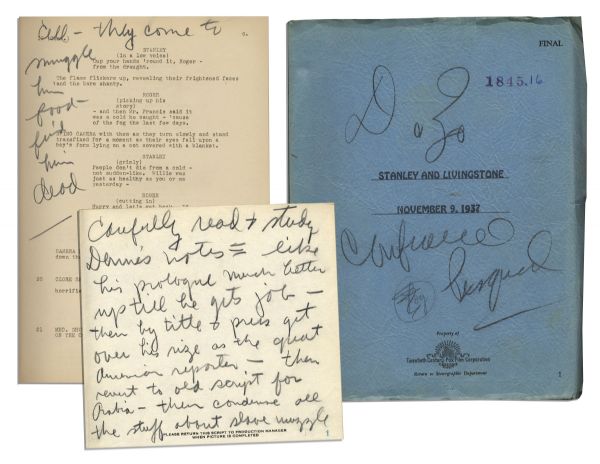 Cell - they come to
smuggle
him
food -
find
him
dead
6.
STANLEY
(in a low voice)
Cup your hands 'round it, Roger -
from the draught.
The flame flickers up, revealing their frightened faces
and the bare shanty.
ROGER
(picking up his
story)
- and then Mr. Francis said it
was a cold he caught - 'cause
of the fog the last few days.
SWING CAMERA with them as they turn slowly and stand
transfixed for a moment as their eyes fall upon a
boy's form lying on a cot covered with a blanket.
STANLEY
(grimly)
People don't die from a cold -
not sudden-like. Willie was
just as healthy as you or me
yesterday -
ROGER
(cutting in)
Hurry and let's get back.
CAMERA
down the
20 CLOSE
horrifie
21 MED.
ON THE
Carefully read & study
Dunne's notes = like
his prologue much better
up till he gets job -
then by title & press get
over his rize as the great
American reporter - then
revert to old script for
Arabia - then condense all
the stuff about slave muzzle
PLEASE RETURN THIS SCRIPT TO PRODUCTION MANAGER
WHEN PICTURE IS COMPLETED
1
FINAL
1845.16
D. Z.
STANLEY AND LIVINGSTONE
NOVEMBER 9, 1937
Conference
Property of
Twentieth Century-Fox Film Corporation
Return to Stenographic Department
1